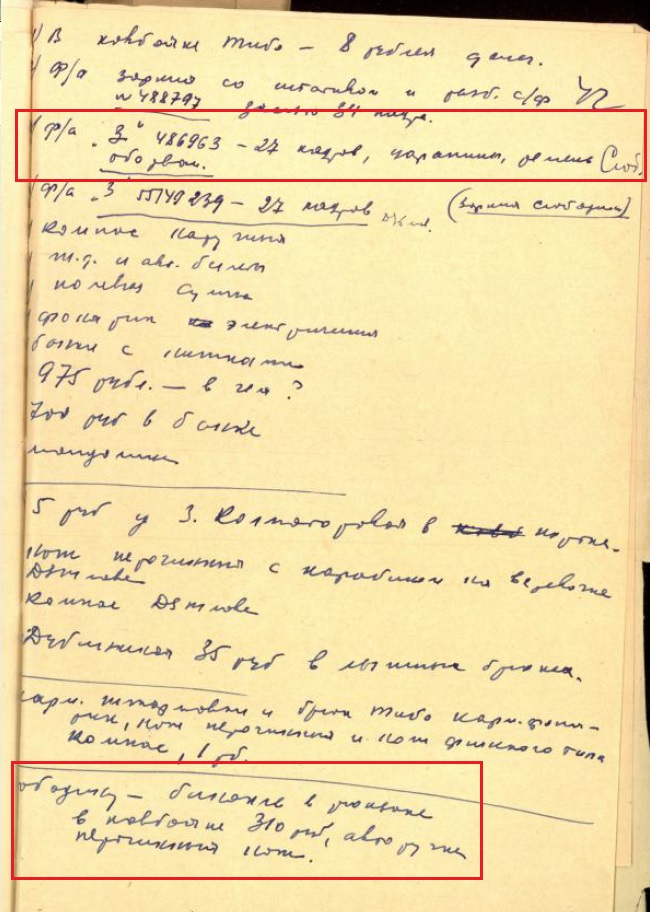 1) В ковбойке Тибо – 8 рублей денег.
1) Ф/а Зоркий со штативом и разб. с/ф
№ 488797 34 кадра.
1) Ф/а "З" 486963 – 27 кадров, царапины, ремень Слоб.
оборван.
1) Ф/а "З" 55149239 – 27 кадров (Зоркий Слободин)
компас карт. ручная
ж.д. и авт. билеты
полевая сумка
фонарик электрический
банки с нитками
975 рубл. – в чем?
700 руб в банке
мандолина
5 руб у З. Колмогоровой в куртке.
нож перочинный с карабином на веревочке
Дятлова
компас Дятлова
Дубининой 35 руб в лыжных брюках.
карм. штормовки и брюк Тибо карм. фона-
рик, нож перочинный и нож финского типа
компас, 1 рб.
ободину – близкие в рюкзаке
в ковбойке 310 руб, авторучка
перочинный нож.